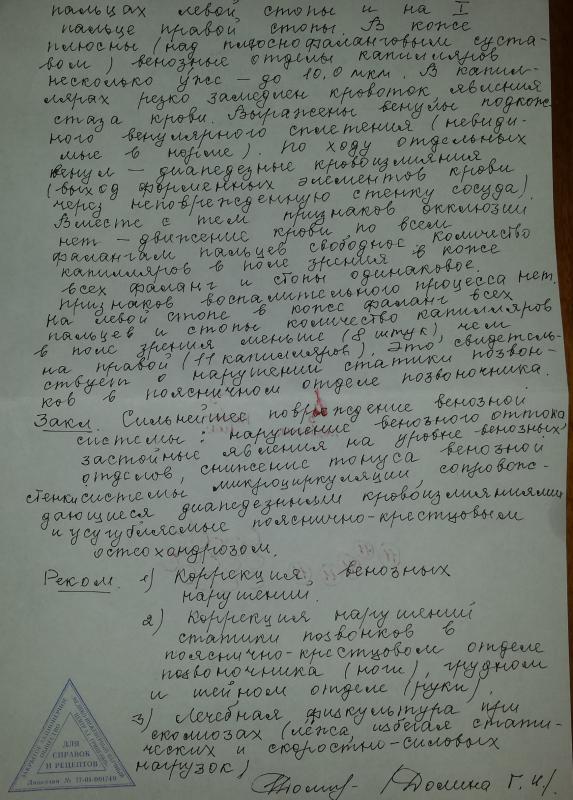 пальцах левой стопы и на I
пальце правой стопы. В коже
плюсны (над плюснофаланговым суста-
вом) венозные отделы капилляров
несколько уже – до 10,0 мкм. В капил-
лярах резко замедлен кровоток явления
стаза крови. Выражены венулы подкож-
ного венулярного сплетения (невиди-
мые в норме). По ходу отдельных
венул – диапедезные кровоизлияния
(выход форменных элементов крови
через неповрежденную стенку сосуда).
Вместе с тем признаков окклюзии
нет – движение крови по всем
фалангам пальцев свободное. Количество
капилляров в поле зрения в коже
всех фаланг и стопы одинаковое.
Признаков воспалительного процесса нет.
На левой стопе в коже фаланг всех
пальцев и стопы количество капилляров
в поле зрения меньше (8 штук), чем
на правой (11 капилляров). Это свидетель-
ствует о нарушении статики позвон-
ков в поясничном отделе позвоночника.
Закл. Сильнейшее повреждение венозной
системы: нарушение венозного оттока
застойные явления на уровне венозных
отделов, снижение тонуса венозной
стенки системы микроциркуляции, сопровож-
дающиеся диапедезными кровоизлияниями
и усугубляемые пояснично-крестцовым
остеохандрозом.
Реком. 1) Коррекция венозных
нарушений.
2) Коррекция нарушений
статики позвонков в
пояснично-крестцовом отделе
позвоночника (ноги), грудном
и шейном отделе (руки).
3) Лечебная физкультура при
сколиозах (лёжа, избегая стати-
ческих и скоростно-силовых
нагрузок)
/Долина Г. И./
ЗАКРЫТОЕ АКЦИОНЕРНОЕ ОБЩЕСТВО
ДЛЯ
СПРАВОК
И РЕЦЕПТОВ
Лицензия №